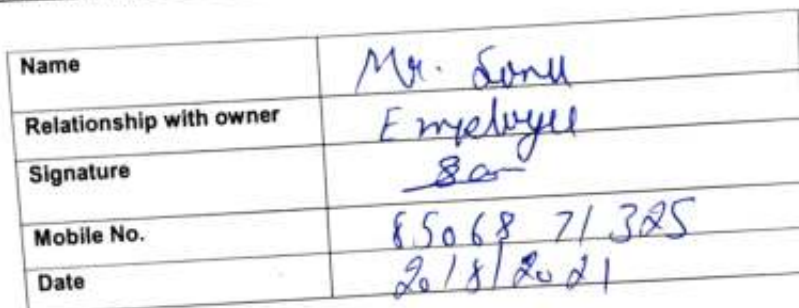 Name Mr. Sonu
Relationship with owner Employee
Signature
Mobile No. 85068 71325
Date 20/8/2021